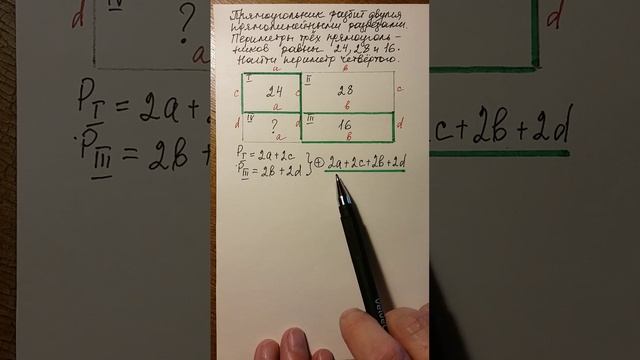 Прямоугольник разбит двумя
прямолинейными разрезами.
Периметры трёх прямоуголь-
ников равны 24, 28 и 16.
Найти периметр четвёртого.
a в
I II
c 24 c 28 c
a в
IV III
d ? d 16 d
a в
P_I = 2a+2c
P_III = 2в+2d } ⊕ 2a+2c+2в+2d
d IV ?
a
P_I = 2a+
P_III = 2в
d
c+2в+2d